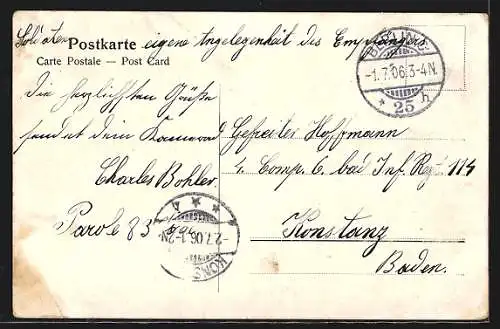 Soldaten Postkarte eigene Angelegenheit des Empfängers
Carte Postale — Post Card
BERLIN.C.
-1.7.06.3-4N.
* 25 h
Die herzlichsten Grüße
sendet dein Kamerad
Charles Bohler
Parole 83
Gefreiter Hoffmann
4. Comp. 6. bad Inf. Regt. 114
Konstanz
Baden.
-2.7.06.1-2N
KONS